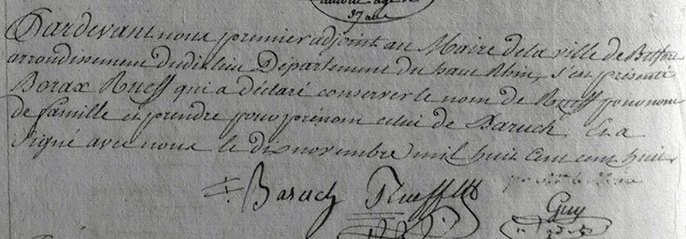 37 ans
Pardevant nous premier adjoint au Maire de la ville de Belfort
arrondissement dudit lieu Département du haut Rhin, s'est présenté
Borax Rueff qui a déclaré conserver le nom de Rueff pour nom
de famille et prendre pour prénom celui de Baruch Et a
signé avec nous le dix novembre mil huit cent cent huit
Baruch Rueff
Guy